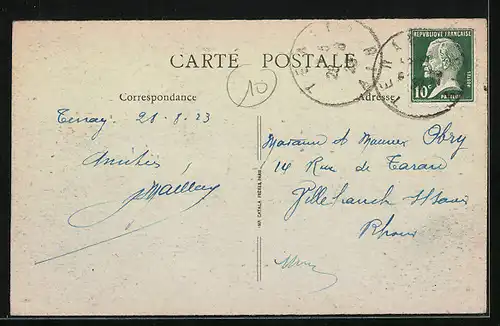 RÉPUBLIQUE FRANÇAISE
POSTES
10c
CARTE POSTALE
10
Correspondance
Adresse
Tenay 28-8-23
Amitiés
Madame et Monsieur Obry
14 Rue de Tarare
Villefranche s/Saône
Rhône
IMP. CATALA FRÈRES, PARIS